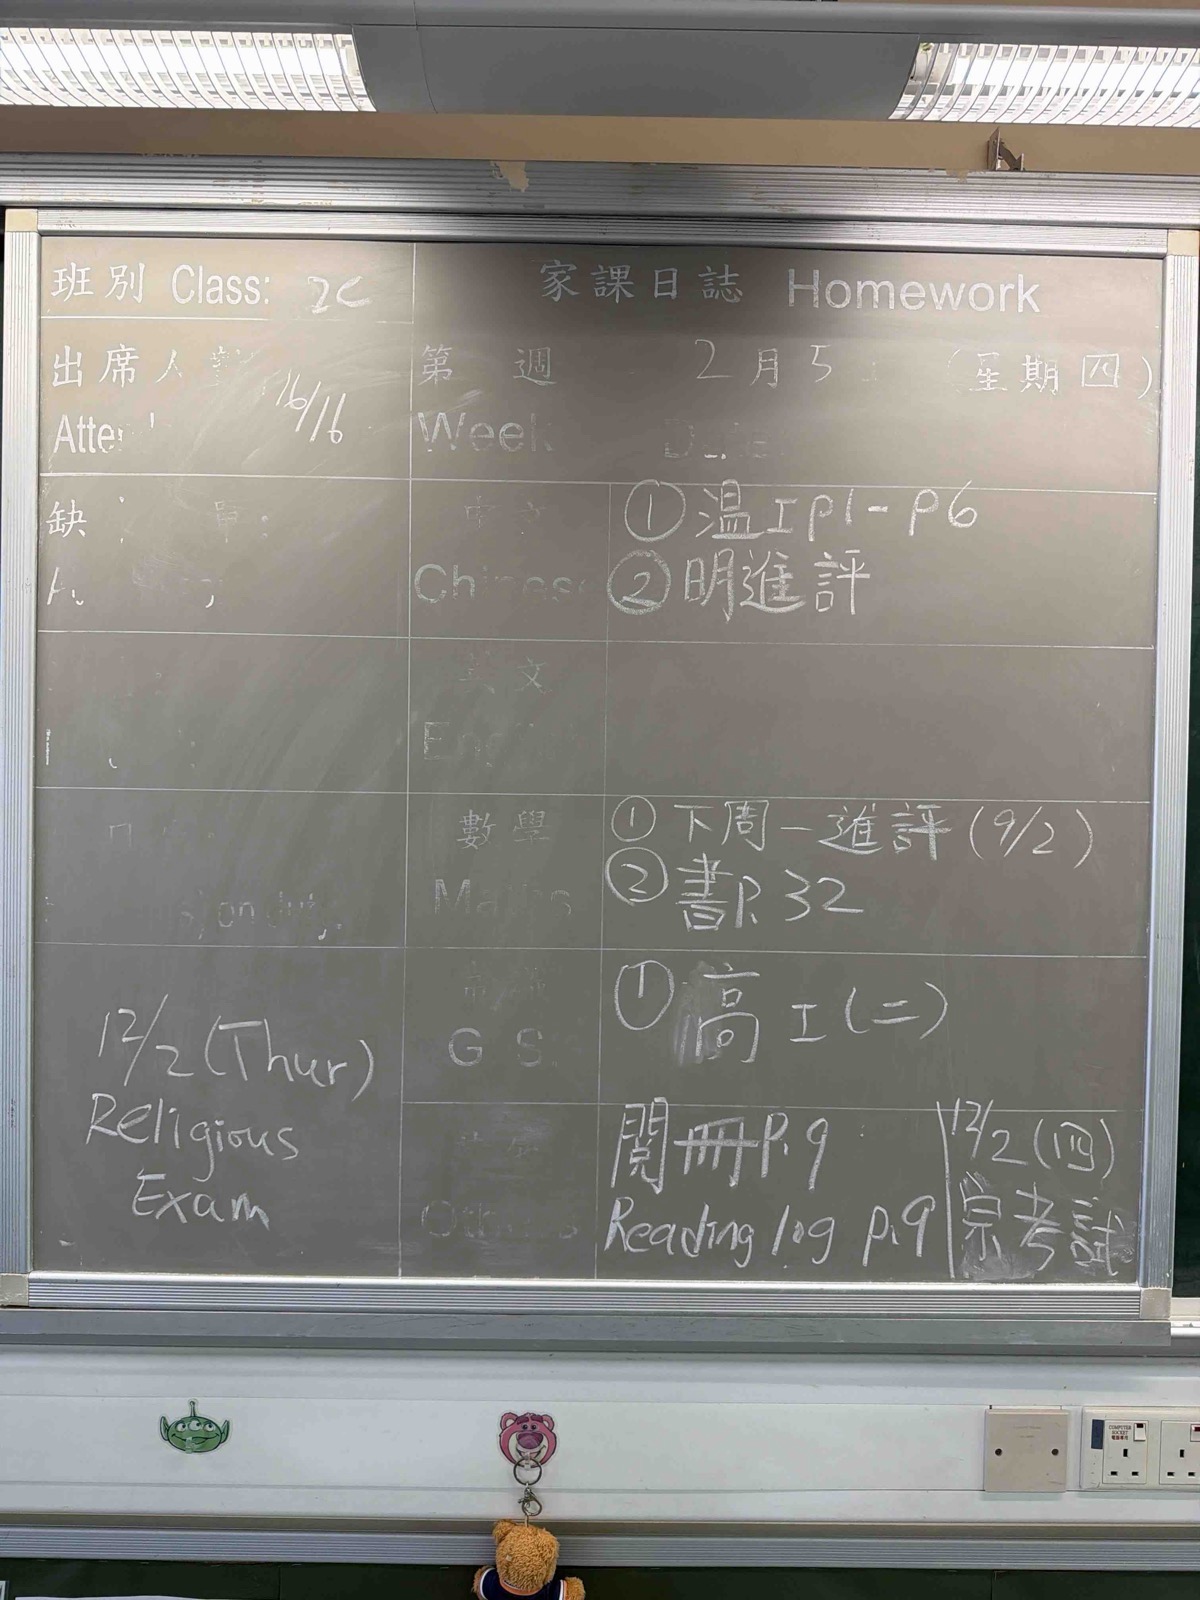 班別 Class: 2C
家課日誌 Homework
出席人數 16/16
第 週 2月5 (星期四)
Week Date
缺
中文
Chinese
① 温工p1-p6
② 明進評
英文
數學
Maths
① 下周一進評(9/2)
② 書P.32
G.S.
① 高工(二)
Others
閱冊P.9
Reading log p.9
12/2(四)
宗考試
12/2(Thur)
Religious
Exam
COMPUTER
SOCKET
電腦專用